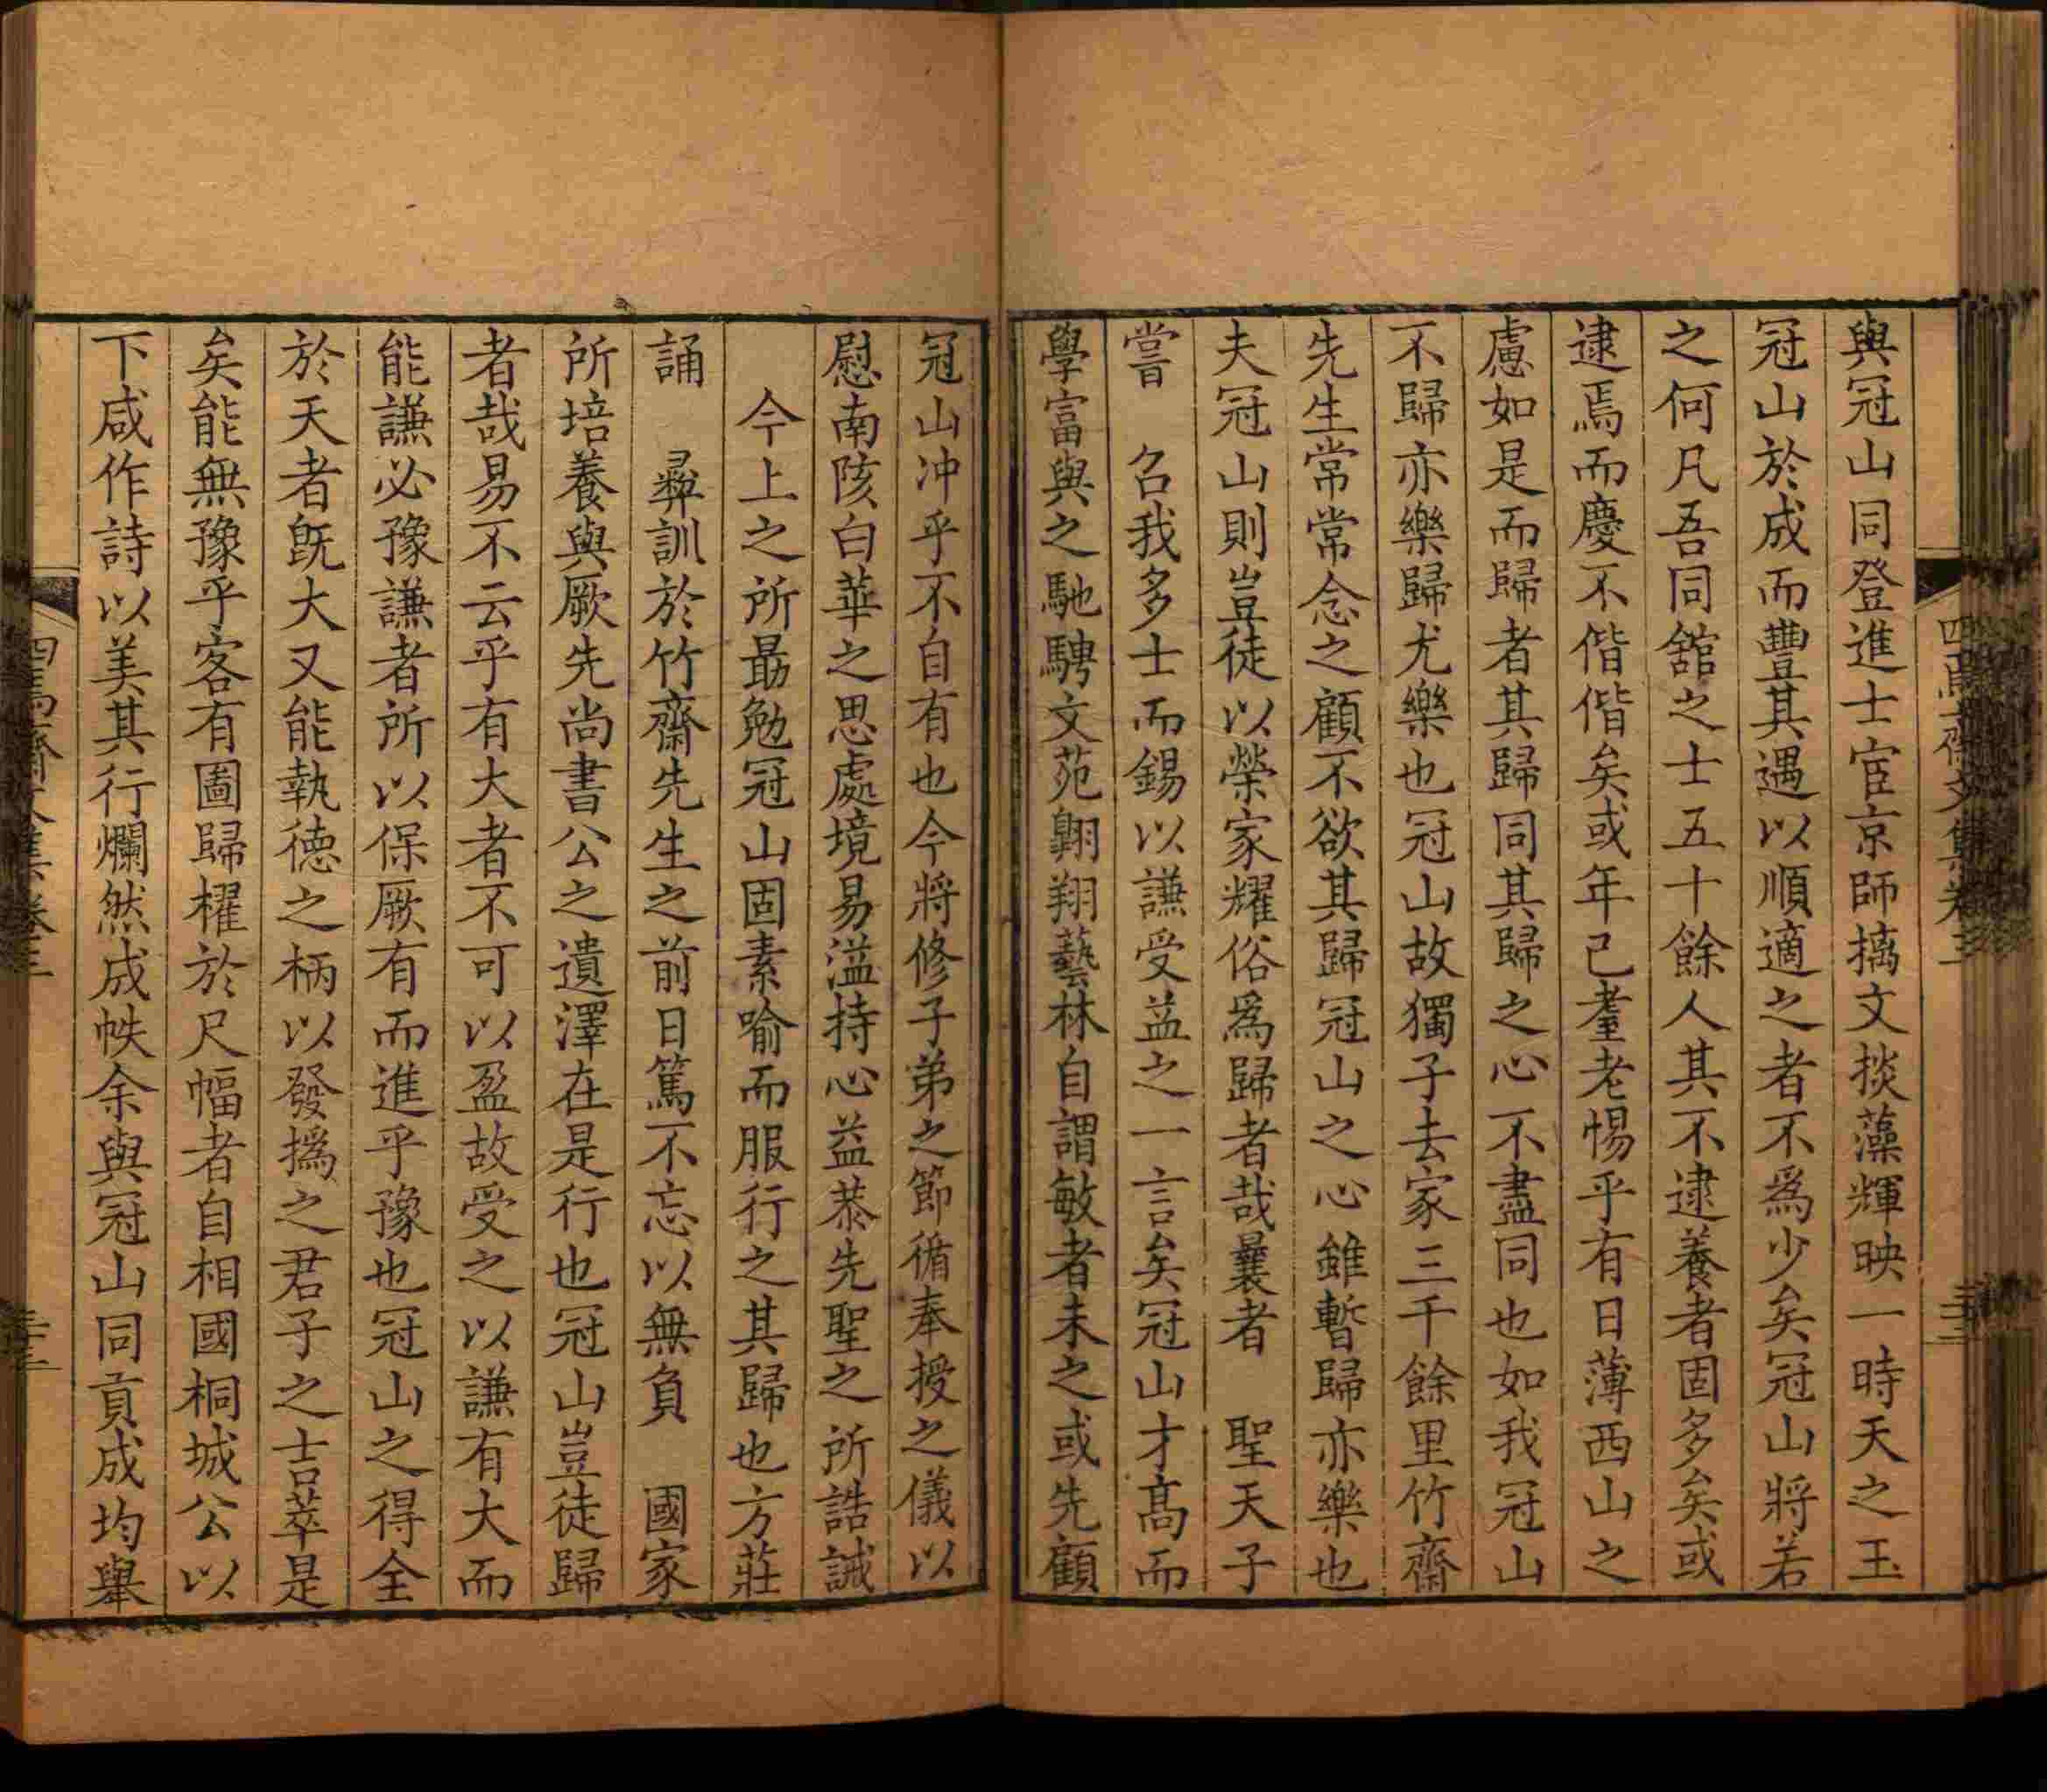 與冠山同登進士宦京師摛文掞藻輝映一時天之玉
冠山於成而豐其遇以順適之者不爲少矣冠山將若
之何凡吾同舘之士五十餘人其不逮養者固多矣或
逮焉而慶不偕偕矣或年已耋老惕乎有日薄西山之
慮如是而歸者其歸同其歸之心不盡同也如我冠山
不歸亦樂歸尤樂也冠山故獨子去家三千餘里竹齋
先生常常念之顧不欲其歸冠山之心雖暫歸亦樂也
夫冠山則豈徒以榮家耀俗爲歸者哉曩者　聖天子
嘗　召我多士而錫以謙受益之一言矣冠山才髙而
學富與之馳騁文苑翺翔藝林自謂敏者未之或先顧
冠山冲乎不自有也今將修子弟之節循奉授之儀以
慰南陔白華之思處境易溢持心益恭先聖之所誥誡
　今上之所最勉冠山固素喻而服行之其歸也方莊
誦　彛訓於竹齋先生之前日篤不忘以無負　國家
所培養與厥先尚書公之遺澤在是行也冠山豈徒歸
者哉易不云乎有大者不可以盈故受之以謙有大而
能謙必豫謙者所以保厥有而進乎豫也冠山之得全
於天者旣大又能執德之柄以發撝之君子之吉萃是
矣能無豫乎客有圖歸櫂於尺幅者自相國桐城公以
下咸作詩以美其行爛然成帙余與冠山同貢成均舉